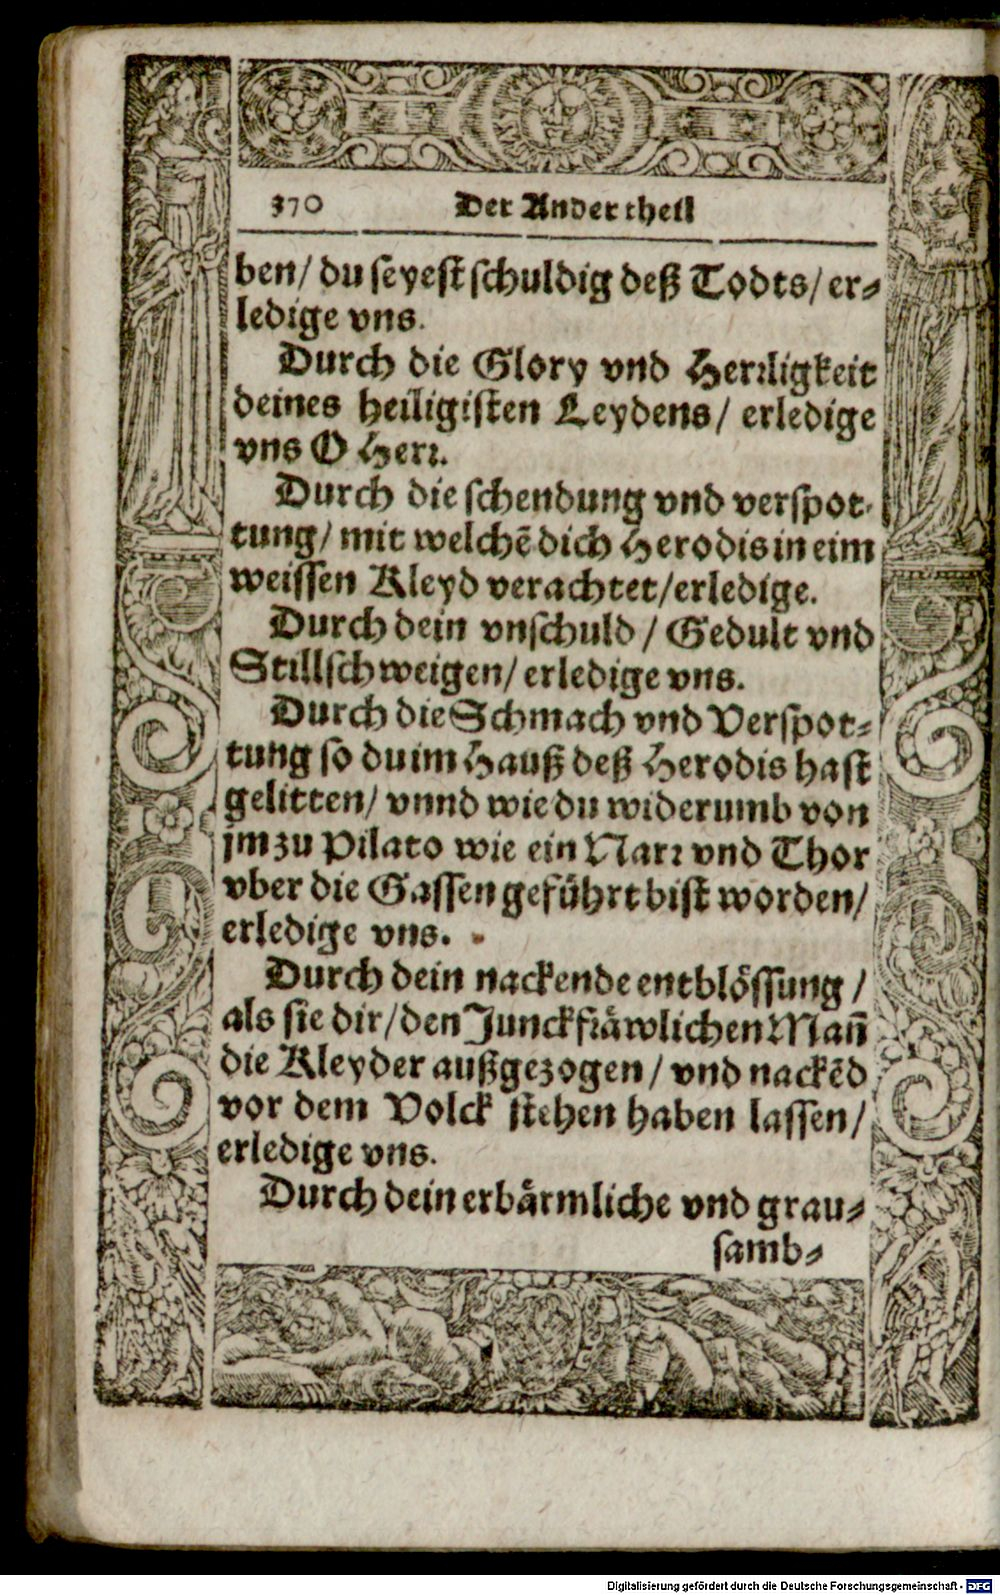 370 Der Ander theil
ben/ du seyest schuldig deß Todts/ er-
ledige vns.
Durch die Glory vnd Herrligkeit
deines heiligisten Leydens/ erledige
vns O Herr.
Durch die schendung vnd verspot-
tung/ mit welchē dich Herodis in eim
weissen Kleyd verachtet/erledige.
Durch dein vnschuld / Gedult vnd
Stillschweigen/ erledige vns.
Durch die Schmach vnd Verspot-
tung so du im Hauß deß Herodis hast
gelitten/ vnnd wie du widerumb von
jm zu Pilato wie ein Narr vnd Thor
vber die Gassen geführt bist worden/
erledige vns.
Durch dein nackende entblössung /
als sie dir/den Junckfräwlichen Mañ
die Kleyder außgezogen / vnd nackēd
vor dem Volck stehen haben lassen/
erledige vns.
Durch dein erbärmliche vnd grau-
samb-
Digitalisierung gefördert durch die Deutsche Forschungsgemeinschaft - DFG